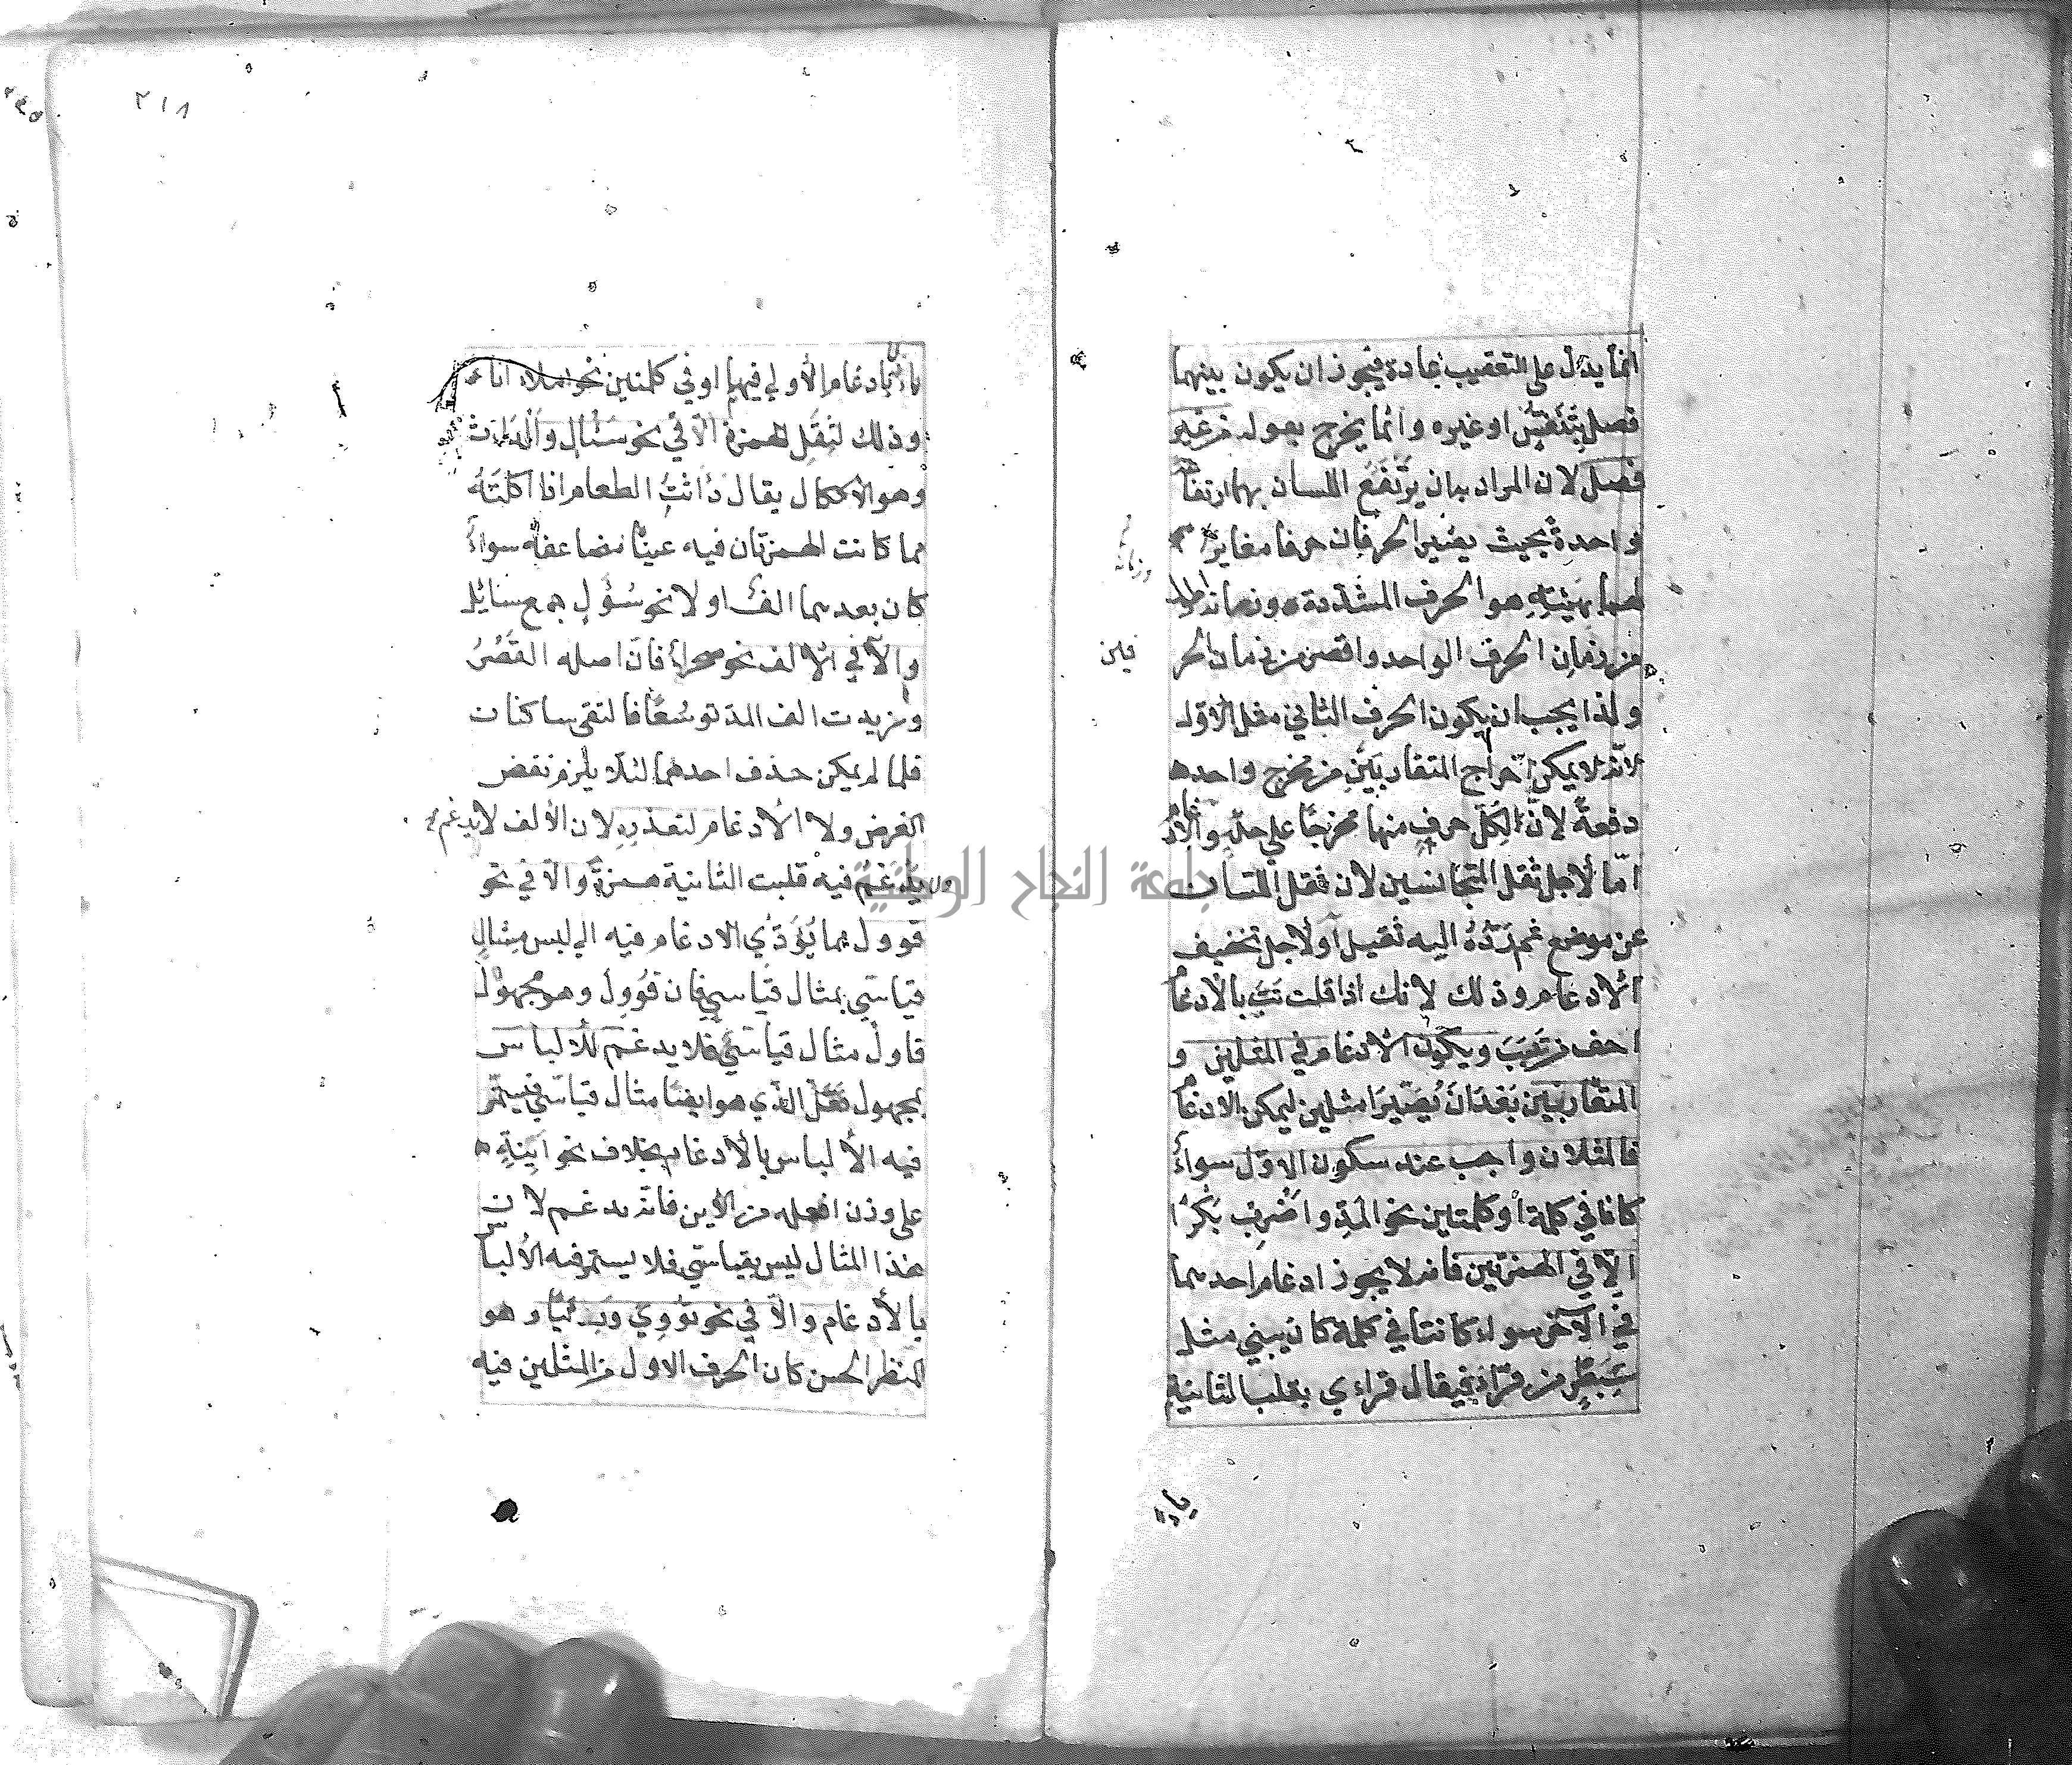 انما يدل على التعقيب عادة فيجوز ان يكون بينهما
فصل بتنفس او غيره وانما يخرج بقوله من غير
فصل لان المراد بان يرتفع اللسان بهما ارتفاعة
واحدة بحيث يصير الحرفان حرفا مغايرا
لهما بهيئته هو الحرف المشددة وزمانه اطول
من زمان الحرف الواحد واقصر من زمان الحر
فين
ولذا يجب ان يكون الحرف الثاني مثل الاول
لانه لا يمكن اخراج المتقاربين من مخرج واحد
دفعة لان لكل حرف منهما مخرجا على حدة والادغام
اما لاجل ثقل المتجانسين لان نقل اللسان
عن موضع ثم رده اليه ثقيل او لاجل تخفيف
الادغام وذلك لانك اذا قلت تب بالادغام
اخف من تبب ويكون الادغام في المثلين و
المتقاربين بعد ان يصيرا مثلين ليمكن الادغام
فالمثلان واجب عند سكون الاول سواء
كانا في كلمة او كلمتين نحو المد واضرب بكرا
الا في الهمزتين فانه لا يجوز ادغام احدهما
في الآخر سواء كانتا في كلمة كان يبني مثل
سبطر من قرأ فيقال قراءي بقلب الثانية
ياء
٢١٨
ياء بادغام الاولى فيها او في كلمتين نحو املاء اناء
وذلك لثقل الهمزة الا في نحو سئال والدأاث
وهو الاكال يقال دأثت الطعام اذا اكلته
مما كانت الهمزتان فيه عينا مضاعفة سواء
كان بعدهما الف او لا نحو سؤل جمع سائل
والا في الالف نحو صحراء فان اصله القصر
وزيدت الف المد توسعا فالتقى ساكنان
فلما لم يمكن حذف احدهما لئلا يلزم نقض
الغرض ولا الادغام لتعذره لان الالف لا يدغم
ولا يدغم فيه قلبت الثانية همزة والا في نحو
قوول مما يؤدي الادغام فيه الى لبس مثال
قياسي بمثال قياسي فان قوول وهو مجهول
قاول مثال قياسي فلا يدغم للالباس
بمجهول فعل الذي هو ايضا مثال قياسي فيستمر
فيه الالباس بالادغام بخلاف نحو اينة
على وزن افعلة من الاين فانه يدغم لان
هذا المثال ليس بقياسي فلا يستمر فيه الالباس
بالادغام والا في نحو تووي وريئا وهو
المنظر الحسن كان الحرف الاول من المثلين فيه
جامعة النجاح الوطنية